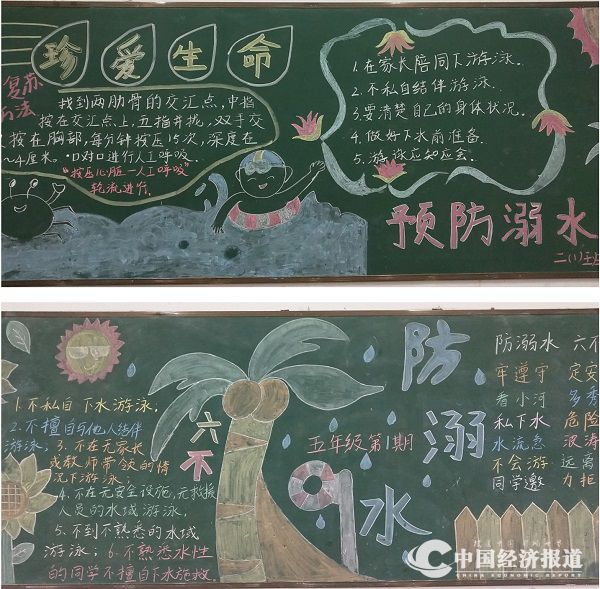 珍爱生命
复苏
方法
找到两肋骨的交汇点,中指
按在交汇点上,五指并拢,双手交
按在胸部,每分钟按压15次,深度在
~4厘米。口对口进行人工呼吸
"按压心脏一人工呼吸"
轮流进行.
1.在家长陪同下游泳.
2.不私自结伴游泳.
3.要清楚自己的身体状况.
4.做好下水前准备.
5.游泳应知应会.
预防溺水
二(1)王
1.不私自下水游泳;
2.不擅自与他人结伴
游泳;3.不在无家长
或教师带领的情
况下游泳;
4.不在无安全设施、无救援
人员的水域游泳;
5.不到不熟悉的水域
游泳;6.不熟悉水性
的同学不擅自下水施救.
六不
五年级第1期
防溺水
防溺水 六不
牢遵守 定安
看小河 多秀
私下水 危险
水流急 波涛
不会游 远离
同学邀 力拒
中国经济报道
CHINA ECONOMIC REPORT